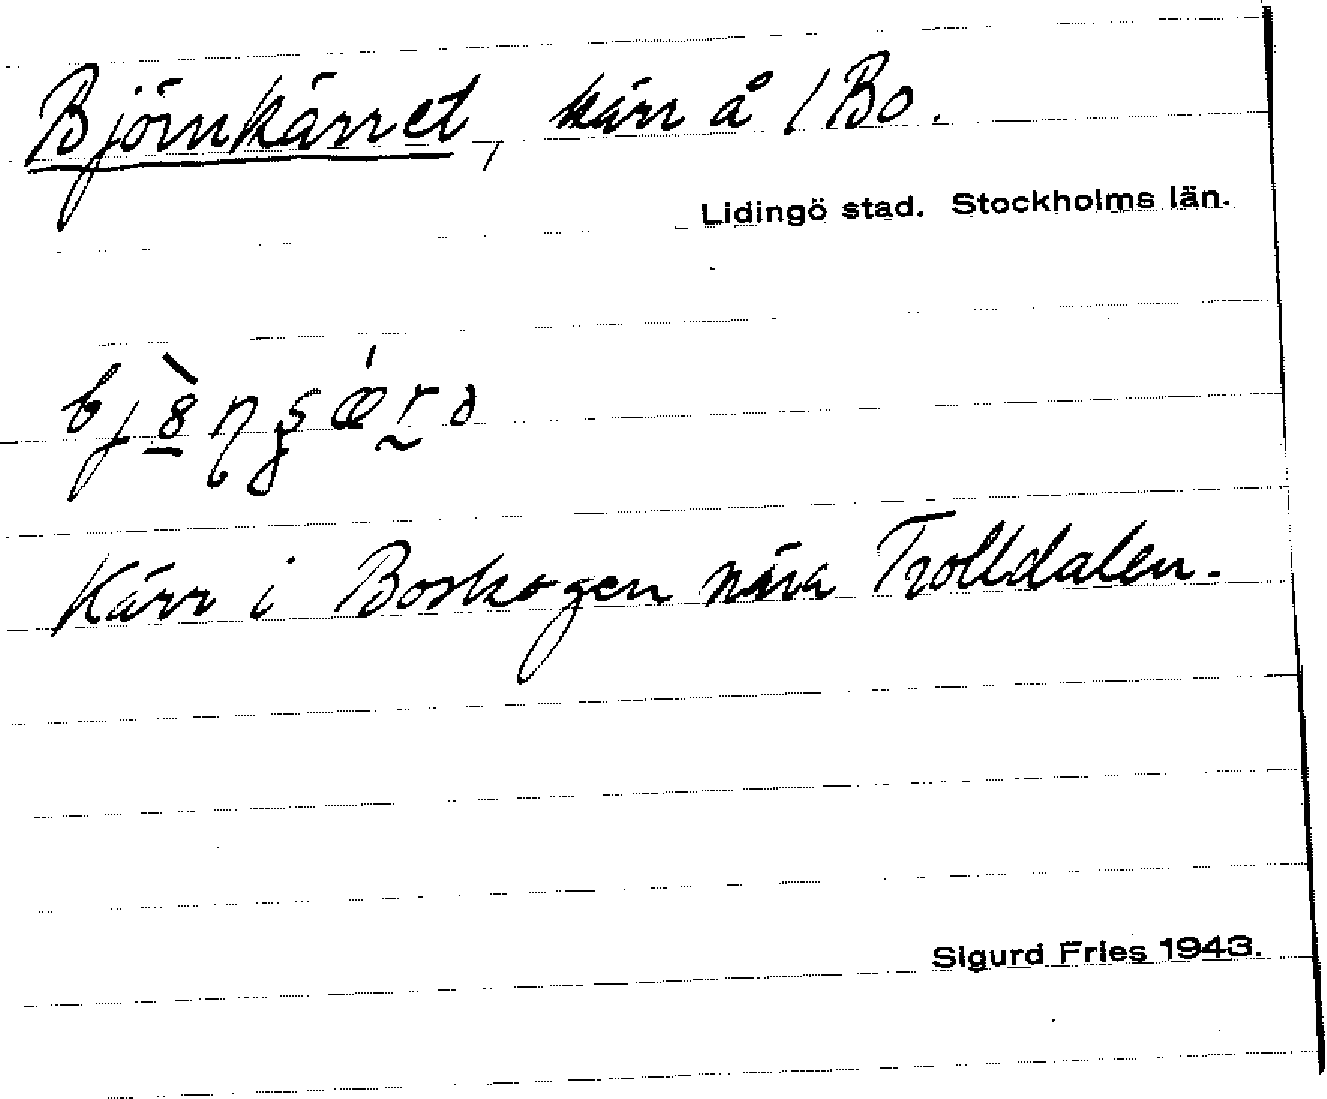 Björnkärret, kärr å 1 Bo.
Lidingö stad. Stockholms län.
Kärr i Boskogen nära Trolldalen.
Sigurd Fries 1943.